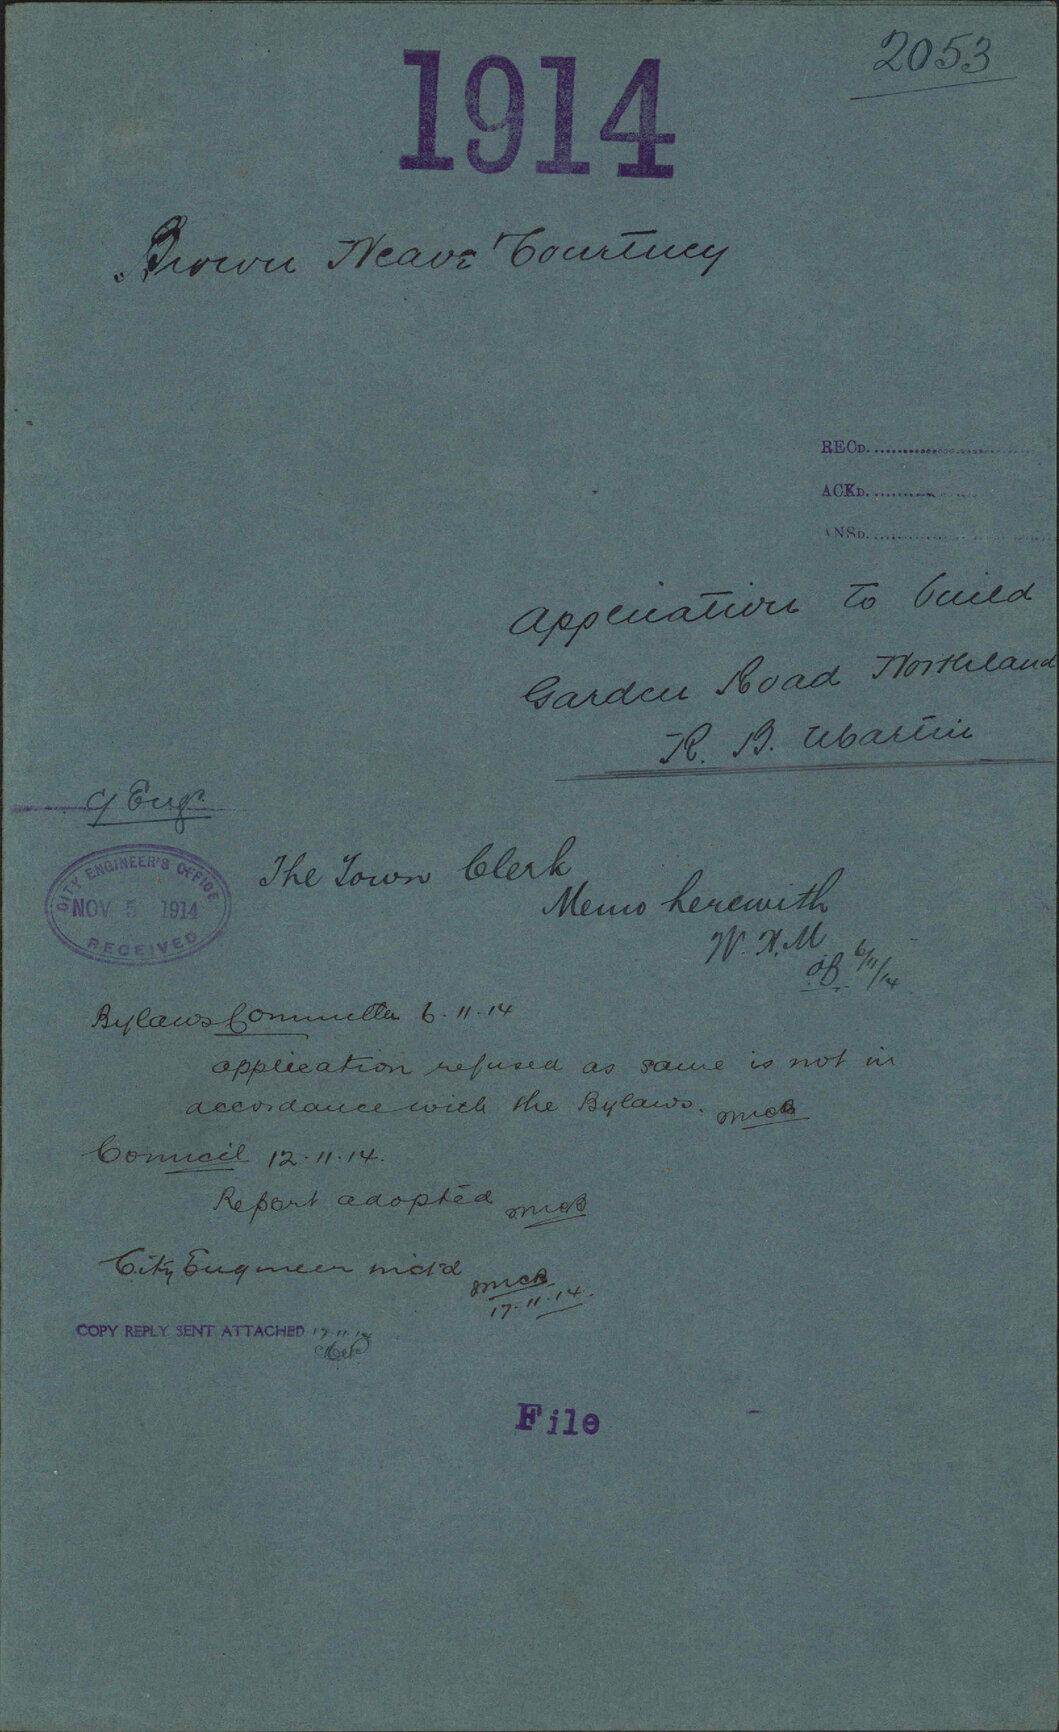 2053
1914
Brown Neave Courtney
RECD.
ACKD.
ANSD.
Application to build
Garden Road Northland
R. B. Martin
Cy Engr.
CITY ENGINEER'S OFFICE
NOV 5 1914
RECEIVED
The Town Clerk
Memo herewith
W. H. M
6/11/14
Bylaws Committee 6.11.14
application refused as same is not in
accordance with the Bylaws.
Council 12.11.14.
Report adopted
City Engineer
17.11.14.
COPY REPLY SENT ATTACHED 17.11.14
File